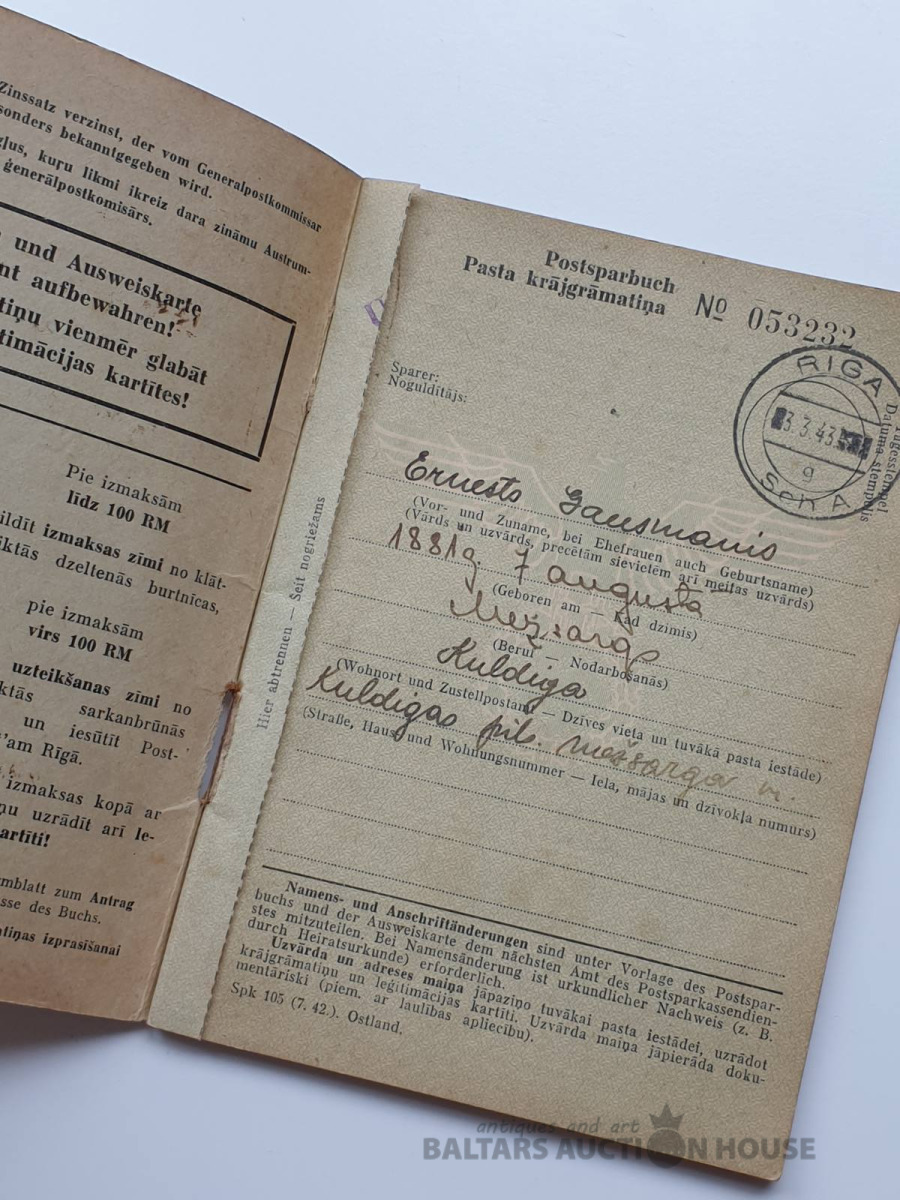 Zinssatz verzinst, der vom Generalpostkommissar
sonders bekanntgegeben wird.
gļus, kuŗu likmi ikreiz dara zināmu Austrum-
ģenerālpostkomisārs.
und Ausweiskarte
nt aufbewahren!
tiņu vienmēr glabāt
timācijas kartītes!
Pie izmaksām
līdz 100 RM
ildīt izmaksas zīmi no klāt-
iktās dzeltenās burtnīcas,
pie izmaksām
virs 100 RM
uzteikšanas zīmi no
iktās sarkanbrūnās
un iesūtīt Post-
'am Rīgā.
izmaksas kopā ar
ņu uzrādīt arī le-
artīti!
mblatt zum Antrag
sse des Buchs.
atiņas izprasīšanai
Hier abtrennen — Šeit nogriežams
Postsparbuch
Pasta krājgrāmatiņa № 053232
RIGA
3.3.43
g
SchA
Tagesstempel
Datuma stempelis
Sparer:
Noguldītājs:
Ernests Gausmanis
(Vor- und Zuname, bei Ehefrauen auch Geburtsname)
(Vārds un uzvārds, precētām sievietēm arī meitas uzvārds)
1881g. 7 augustā
(Geboren am — Kad dzimis)
Mežsarg
(Beruf — Nodarbošanās)
Kuldiga
(Wohnort und Zustellpostamt — Dzīves vieta un tuvākā pasta iestāde)
Kuldigas pils. mežsarga m.
(Straße, Haus- und Wohnungsnummer — Iela, mājas un dzīvokļa numurs)
Namens- und Anschriftänderungen sind unter Vorlage des Postspar-
buchs und der Ausweiskarte dem nächsten Amt des Postsparkassendien-
stes mitzuteilen. Bei Namensänderung ist urkundlicher Nachweis (z. B.
durch Heiratsurkunde) erforderlich.
Uzvārda un adreses maiņa jāpaziņo tuvākai pasta iestādei, uzrādot
krājgrāmatiņu un leģitimācijas kartīti. Uzvārda maiņa jāpierāda doku-
mentāriski (piem. ar laulības apliecību).
Spk 105 (7. 42.). Ostland.
antiques and art
BALTARS AUCTION HOUSE